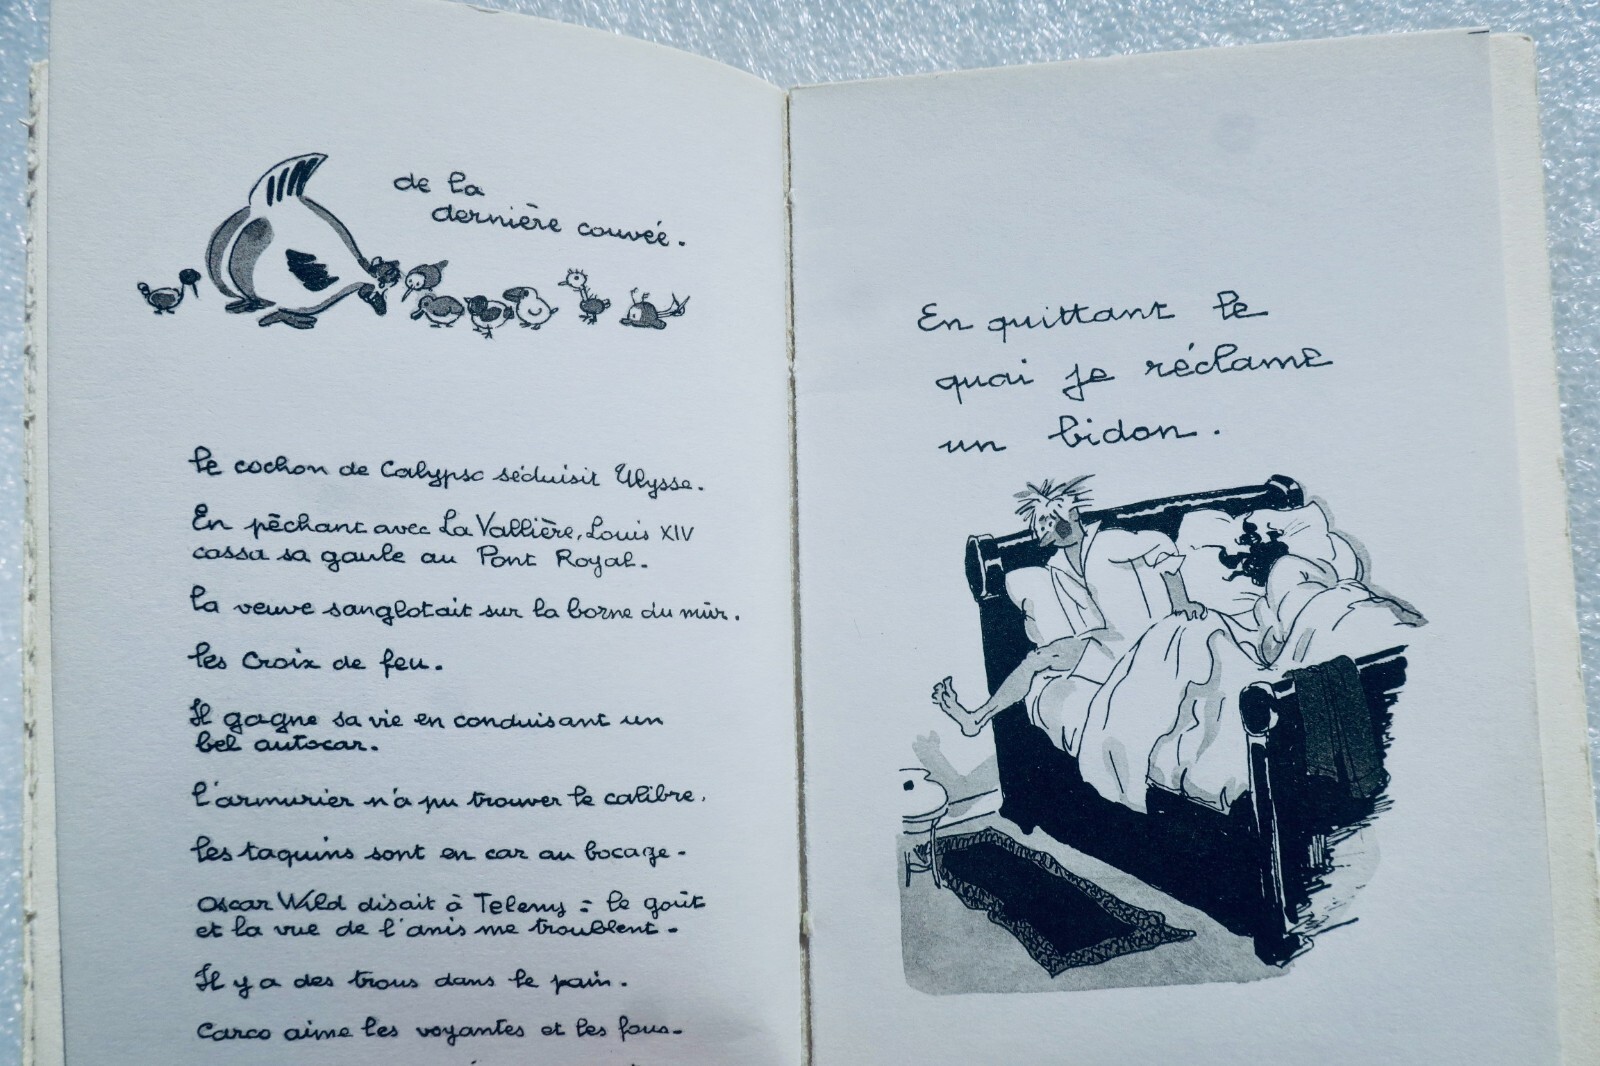 de la
dernière couvée.
Le cochon de Calypso séduisit Ulysse.
En pêchant avec La Vallière, Louis XIV
cassa sa gaule au Pont Royal.
La veuve sanglotait sur la borne du mur.
Les Croix de feu.
Il gagne sa vie en conduisant un
bel autocar.
L'armurier n'a pu trouver le calibre.
Les taquins sont en car au bocage -
Oscar Wild disait à Teleny : le goût
et la vue de l'anis me troublent -
Il y a des trous dans le pain.
Carco aime les voyantes et les fous -
En quittant le
quai je réclame
un bidon.